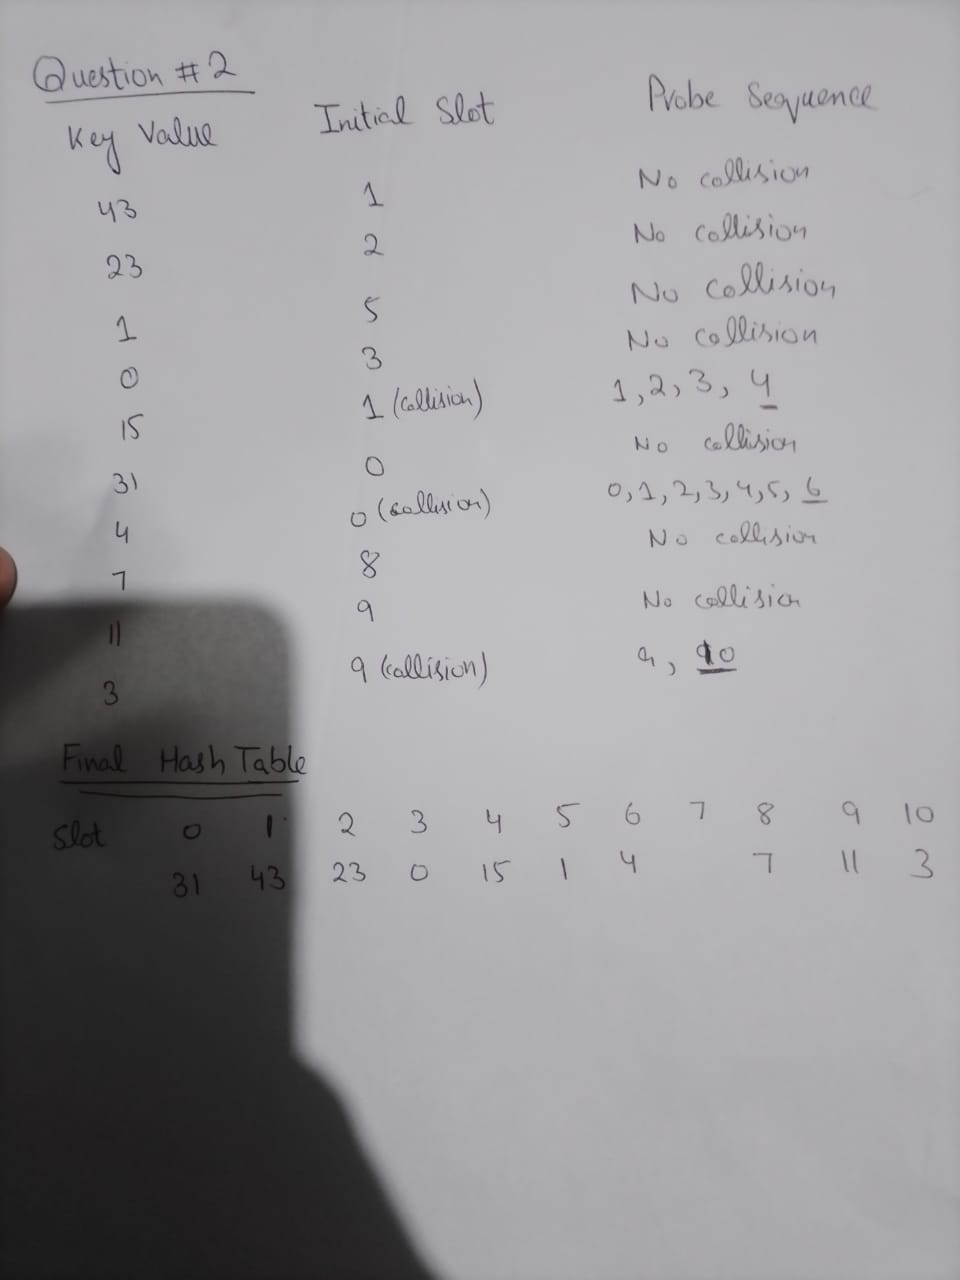 Question #2
Key Value Initial Slot Probe Sequence
43 1 No collision
23 2 No collision
1 5 No collision
0 3 No collision
15 1 (collision) 1, 2, 3, 4
31 0 No collision
4 0 (collision) 0, 1, 2, 3, 4, 5, 6
7 8 No collision
11 9 No collision
3 9 (collision) 9, 10
Final Hash Table
Slot 0 1 2 3 4 5 6 7 8 9 10
31 43 23 0 15 1 4 7 11 3